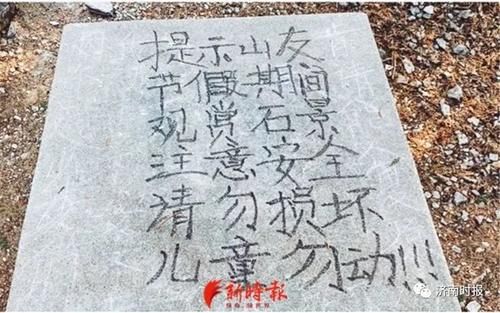 提示山友
节假期间
观赏石景
注意安全
请勿损坏
儿童勿动!!!
新时报
济南时报